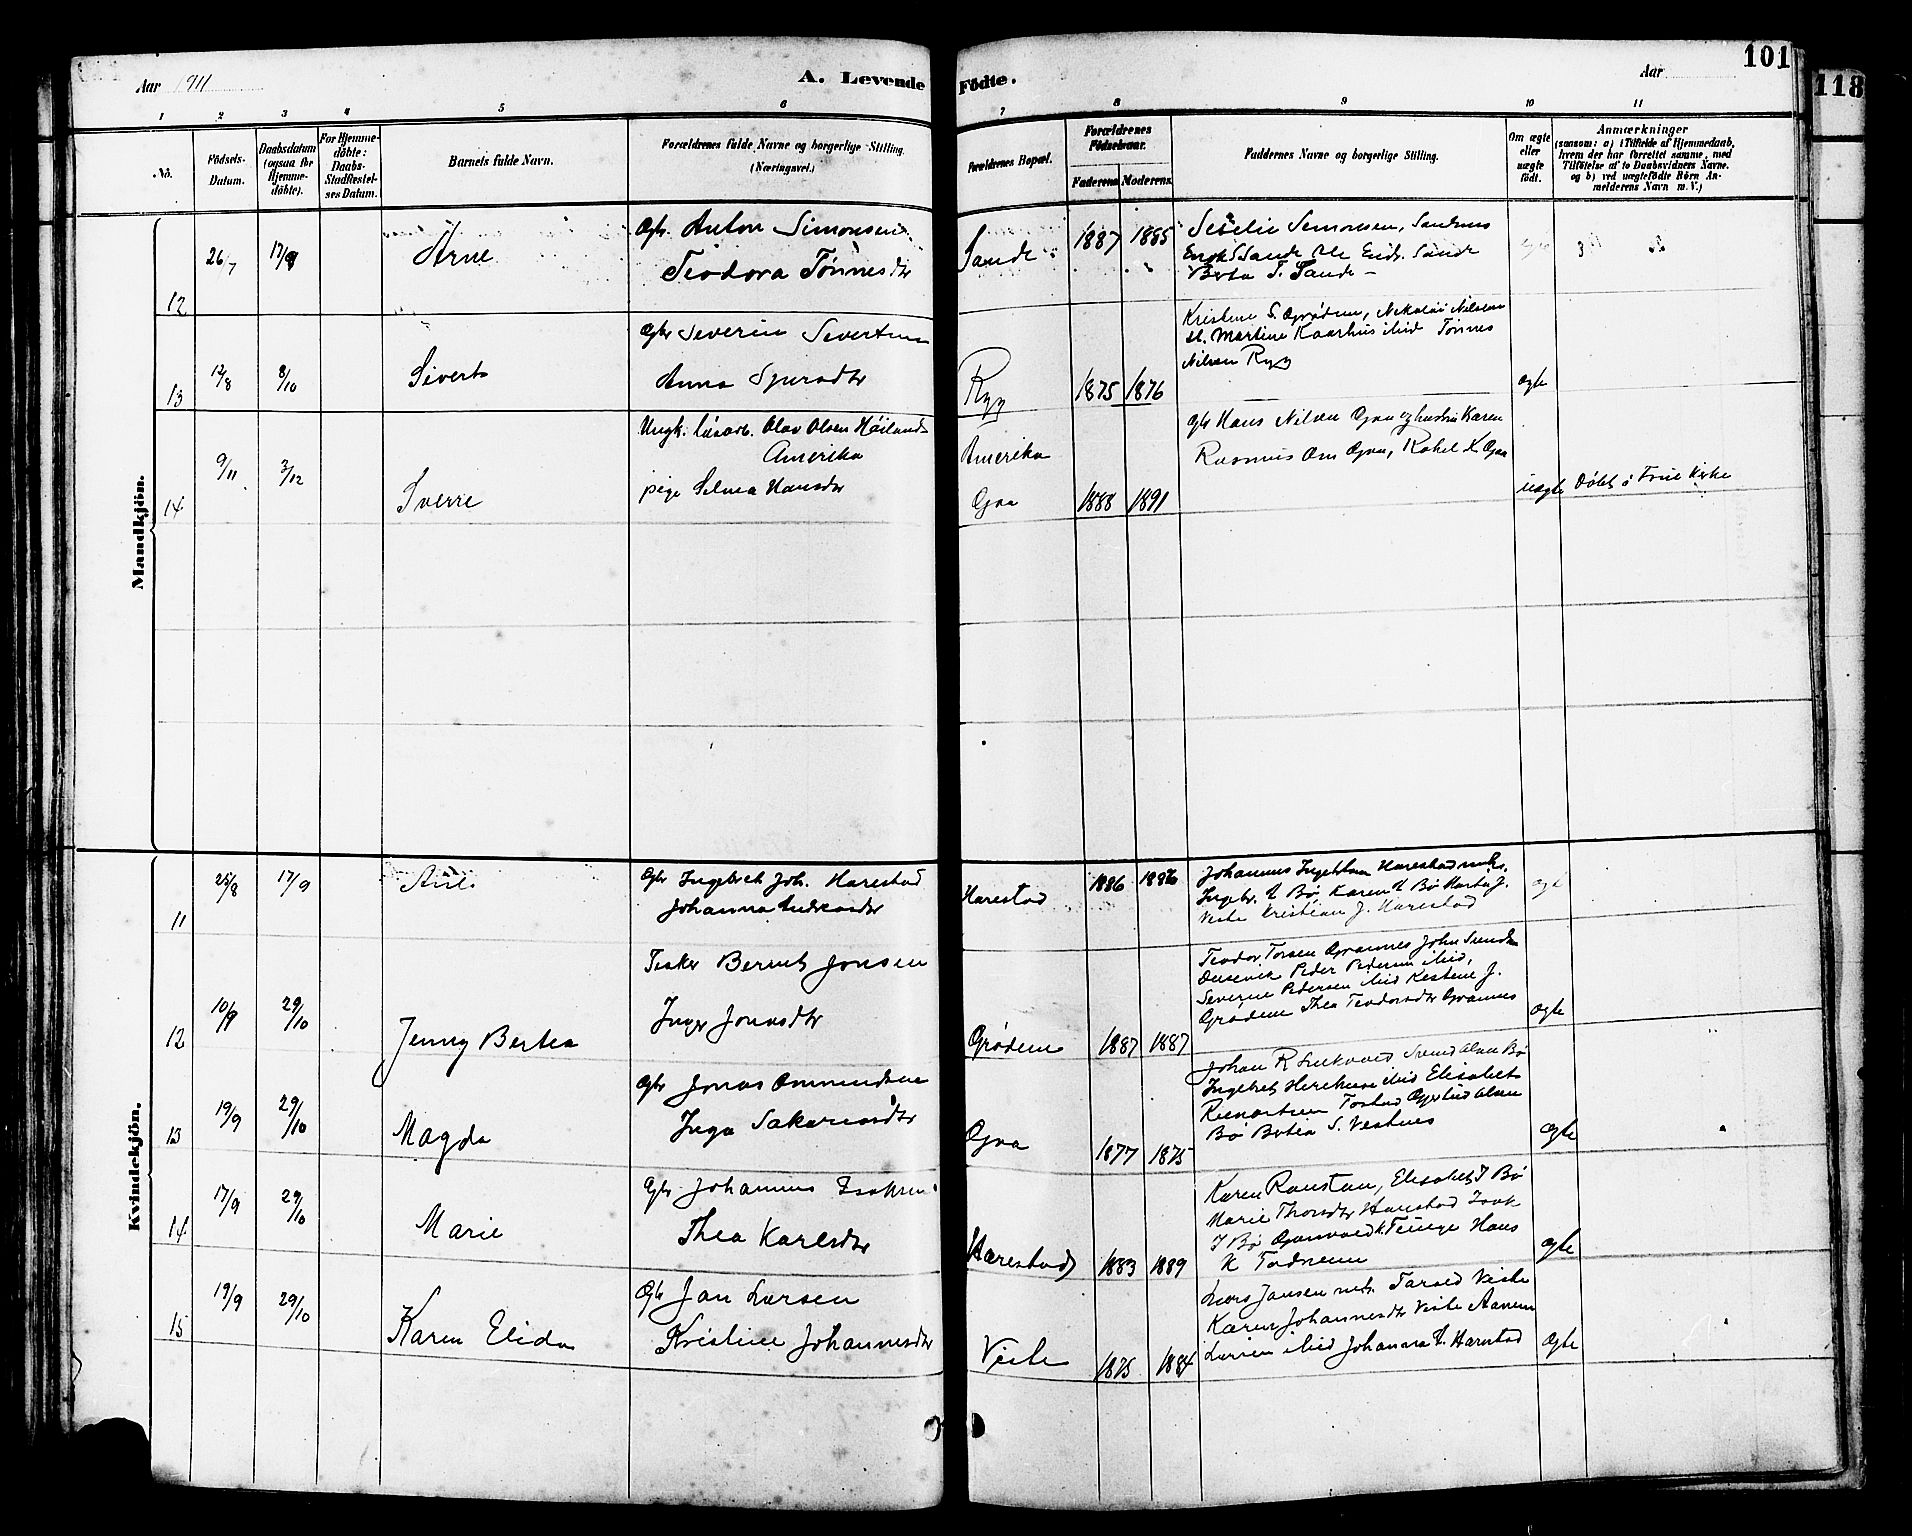 101
118
Aar 1911
A. Levende Fødte.
Aar
1 2 3 4 5 6 7 8 9 10 11
No.
Födsels-Datum.
Daabsdatum (ogsaa for Hjemme-döbte).
For Hjemme-döbte: Daabs-Stadfæstel-ses Datum.
Barnets fulde Navn.
Forældrenes fulde Navne og borgerlige Stilling. (Næringsvei.)
Forældrenes Bopæl.
Forældrenes Födselsaar.
Faderens Moderens.
Faddernes Navne og borgerlige Stilling.
Om ægte eller uægte födt.
Anmærkninger
(saasom: a) i Tilfælde af Hjemmedaab,
hvem der har forrettet samme, med
Tilföielse af to Daabsvidners Navne,
og b) ved uægtefödte Börn An-
melderens Navn m. V.)
Mandkjön.
12 26/7 17/9 Arne
Gbr Anton Simonsen
Teodora Tønnesdtr
Sande 1887 1885
Simonsen, Sandnes
Sande
Berta T. Sande
13 12/8 8/10 Sivert
Gbr Severin Sivertsen
Anna Sjursdtr
Ryg 1875 1876
Kristine S. Grødem, Nikolai Nilsen
Martine Kaarhus ibid Tønnes
Nilsen Ryg
ægte
14 9/11 3/12 Sverre
Ungk. løsarb. Olav Olsen Høiland
Amerika
pige Selma Hansdtr
Amerika
Goa 1888 1891
gbr Hans Nilsen Goa og hustru Karen
Rasmus Om Goa, Rakel K Goa
uægte Døbt i Frue Kirke
Kvindekjön.
11 25/8 17/9
Gbr Ingebret Joh. Harestad
Johanna
Harestad 1886 1886
Johannes Harestad
Bø Karen Bø Marta J.
Viste Kristian J. Harestad
12 10/9 29/10 Jenny Bertea
Fisker Berent Jonsen
Inger Jonasdtr
Grødem 1887 1887
Teodor Torsen Grannes John
Peder Pedersen ibid,
Severine Pedersen ibid Kestene J.
Grødem Thea Teodorsdtr Grannes
ægte
13 19/9 29/10 Magda
Gbr Jonas Ommundsen
Inga Sakariasdtr
Goa 1877 1875
Johan R Svend Olsen Bø
Ingebret ibid Elisabet
Olsen
Bø Bertea S. Vestnes
ægte
14 17/9 29/10 Marie
Gbr Johannes Isaksen
Thea Karlsdtr
Harestad 1883 1889
Karen Elisabet I Bø
Marie Thorsdtr Harestad Isak
I Bø Hans
K Todneim
ægte
15 19/9 29/10 Karen Elida
Gbr Jan Larsen
Kristine Johannesdtr
Viste 1875 1884
Lars Jansen Viste
Karen Johannesdtr Viste
Larsen ibid Johanna Harestad
ægte